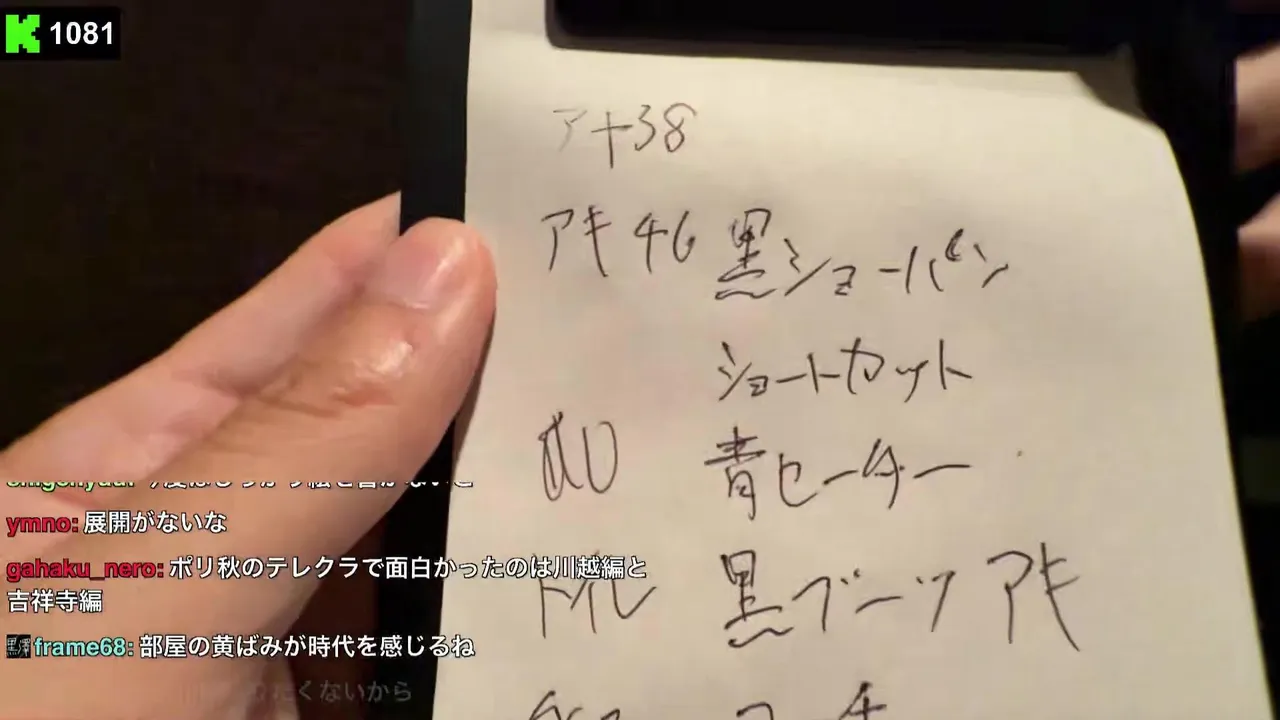 1081
アナ38
アキ 46 黒ショーパン
ショートカット
青セーター
黒ブーツ アキ
ymno: 展開がないな
gahaku_nero: ポリ秋のテレクラで面白かったのは川越編と
吉祥寺編
frame68: 部屋の黄ばみが時代を感じるね
たくないから